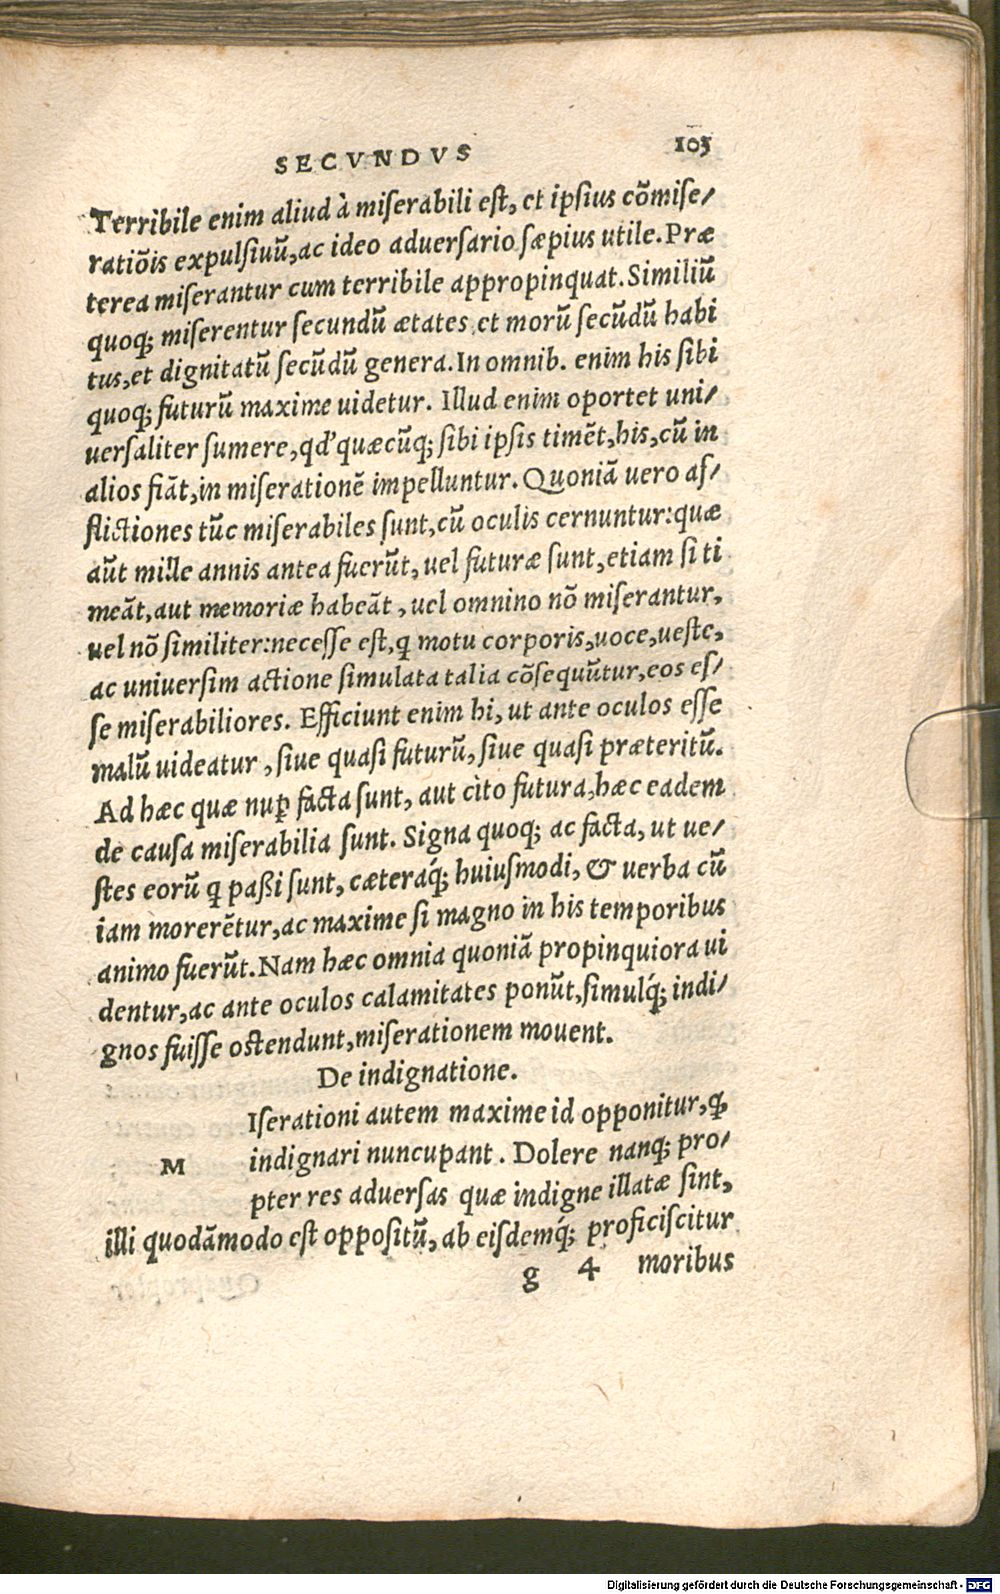 SECVNDVS 103
Terribile enim aliud à miserabili est, et ipsius cõmise/
ratiõis expulsiuũ, ac ideo aduersario sæpius utile. Præ
terea miserantur cum terribile appropinquat. Similiũ
quoq; miserentur secundũ ætates et morũ secũdũ habi
tus, et dignitatũ secũdũ genera. In omnib. enim his sibi
quoq; futurũ maxime uidetur. Illud enim oportet uni/
uersaliter sumere, qd' quæcũq; sibi ipsis timẽt, his, cũ in
alios fiãt, in miserationẽ impelluntur. Quoniã uero af/
flictiones tũc miserabiles sunt, cũ oculis cernuntur: quæ
aũt mille annis antea fuerũt, uel futuræ sunt, etiam si ti
meãt, aut memoriæ habeãt, uel omnino nõ miserantur,
uel nõ similiter: necesse est, ꝗ motu corporis, uoce, ueste,
ac uniuersim actione simulata talia cõsequũtur, eos es/
se miserabiliores. Efficiunt enim hi, ut ante oculos esse
malũ uideatur, siue quasi futurũ, siue quasi præteritũ.
Ad hæc quæ nuꝑ facta sunt, aut cito futura, hæc eadem
de causa miserabilia sunt. Signa quoq; ac facta, ut ue/
stes eorũ ꝗ paßi sunt, cæteraq́; huiusmodi, & uerba cũ
iam morerẽtur, ac maxime si magno in his temporibus
animo fuerũt. Nam hæc omnia quoniã propinquiora ui
dentur, ac ante oculos calamitates ponũt, simulq́; indi/
gnos fuisse ostendunt, miserationem mouent.
De indignatione.
M Iserationi autem maxime id opponitur, ꝙ
indignari nuncupant. Dolere nanq; pro/
pter res aduersas quæ indigne illatæ sint,
illi quodãmodo est oppositũ, ab eisdemq́; proficiscitur
g 4 moribus
Digitalisierung gefördert durch die Deutsche Forschungsgemeinschaft - DFG